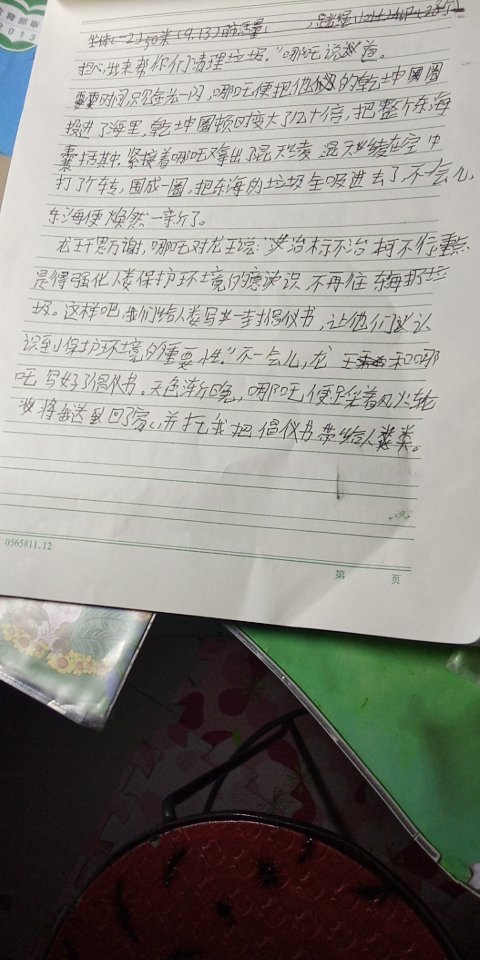 教育部审
2013
坐体(-2) 50米(9.13) 肺活量
担心,我来帮你们清理垃圾。”哪吒说道。
时间只淹在一闪,哪吒便把他的乾坤圈
投进了海里,乾坤圈顿时变大了几十倍,把整个东海
囊括其中,紧接着哪吒拿出了混天绫,混天绫在空中
打了个转,围成一圈,把东海的垃圾全吸进去了,不一会儿,
东海便焕然一新了。
龙王千恩万谢,哪吒对龙王说:“治标不治柯不行,重点
是得强化人类保护环境的意识,不再往东海扔垃
圾。这样吧,我们给人类写一封倡仪书,让他们认
识到保护环境的重要性。”不一会儿,龙王和哪
吒写好了倡仪书。天色渐晚,哪吒便踩着风火轮
将我送回了家,并托我把倡仪书带给人类。
0565811.12
第 页